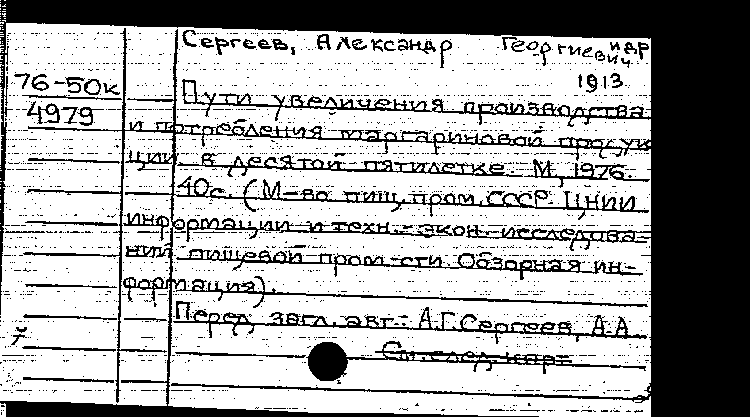 Сергеев, Александр Георгиевич и др
1913
76-50к
4979
Пути увеличения производства
и потребления маргариновой продук
ции в десятой пятилетке. М, 1976.
40с. (М-во пищ. пром. СССР. ЦНИИ
информации и техн.-экон. исследова-
ний пищевой пром-сти. Обзорная ин-
формация).
Перед загл. авт.: А.Г. Сергеев, А.А
См. след. кар-